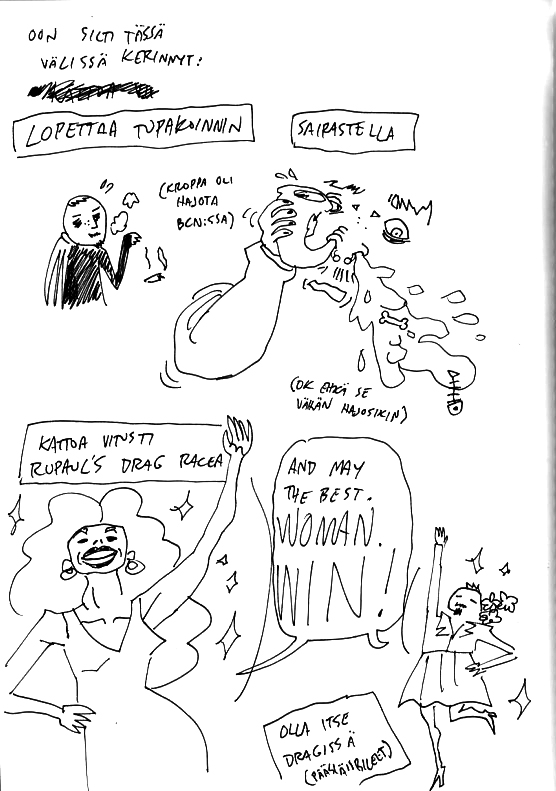 OON SILTI TÄSSÄ
VÄLISSÄ KERINNYT:
LOPETTAA TUPAKOINNIN
SAIRASTELLA
(KROPPA OLI
HAJOTA
BCN:SSA)
(OK EHKÄ SE
VÄHÄN HAJOSIKIN)
KATTOA VITUSTI
RUPAUL'S DRAG RACEA
AND MAY
THE BEST.
WOMAN.
WIN!
OLLA ITSE
DRAGISSÄ
(PÄÄSIÄISBILEET)